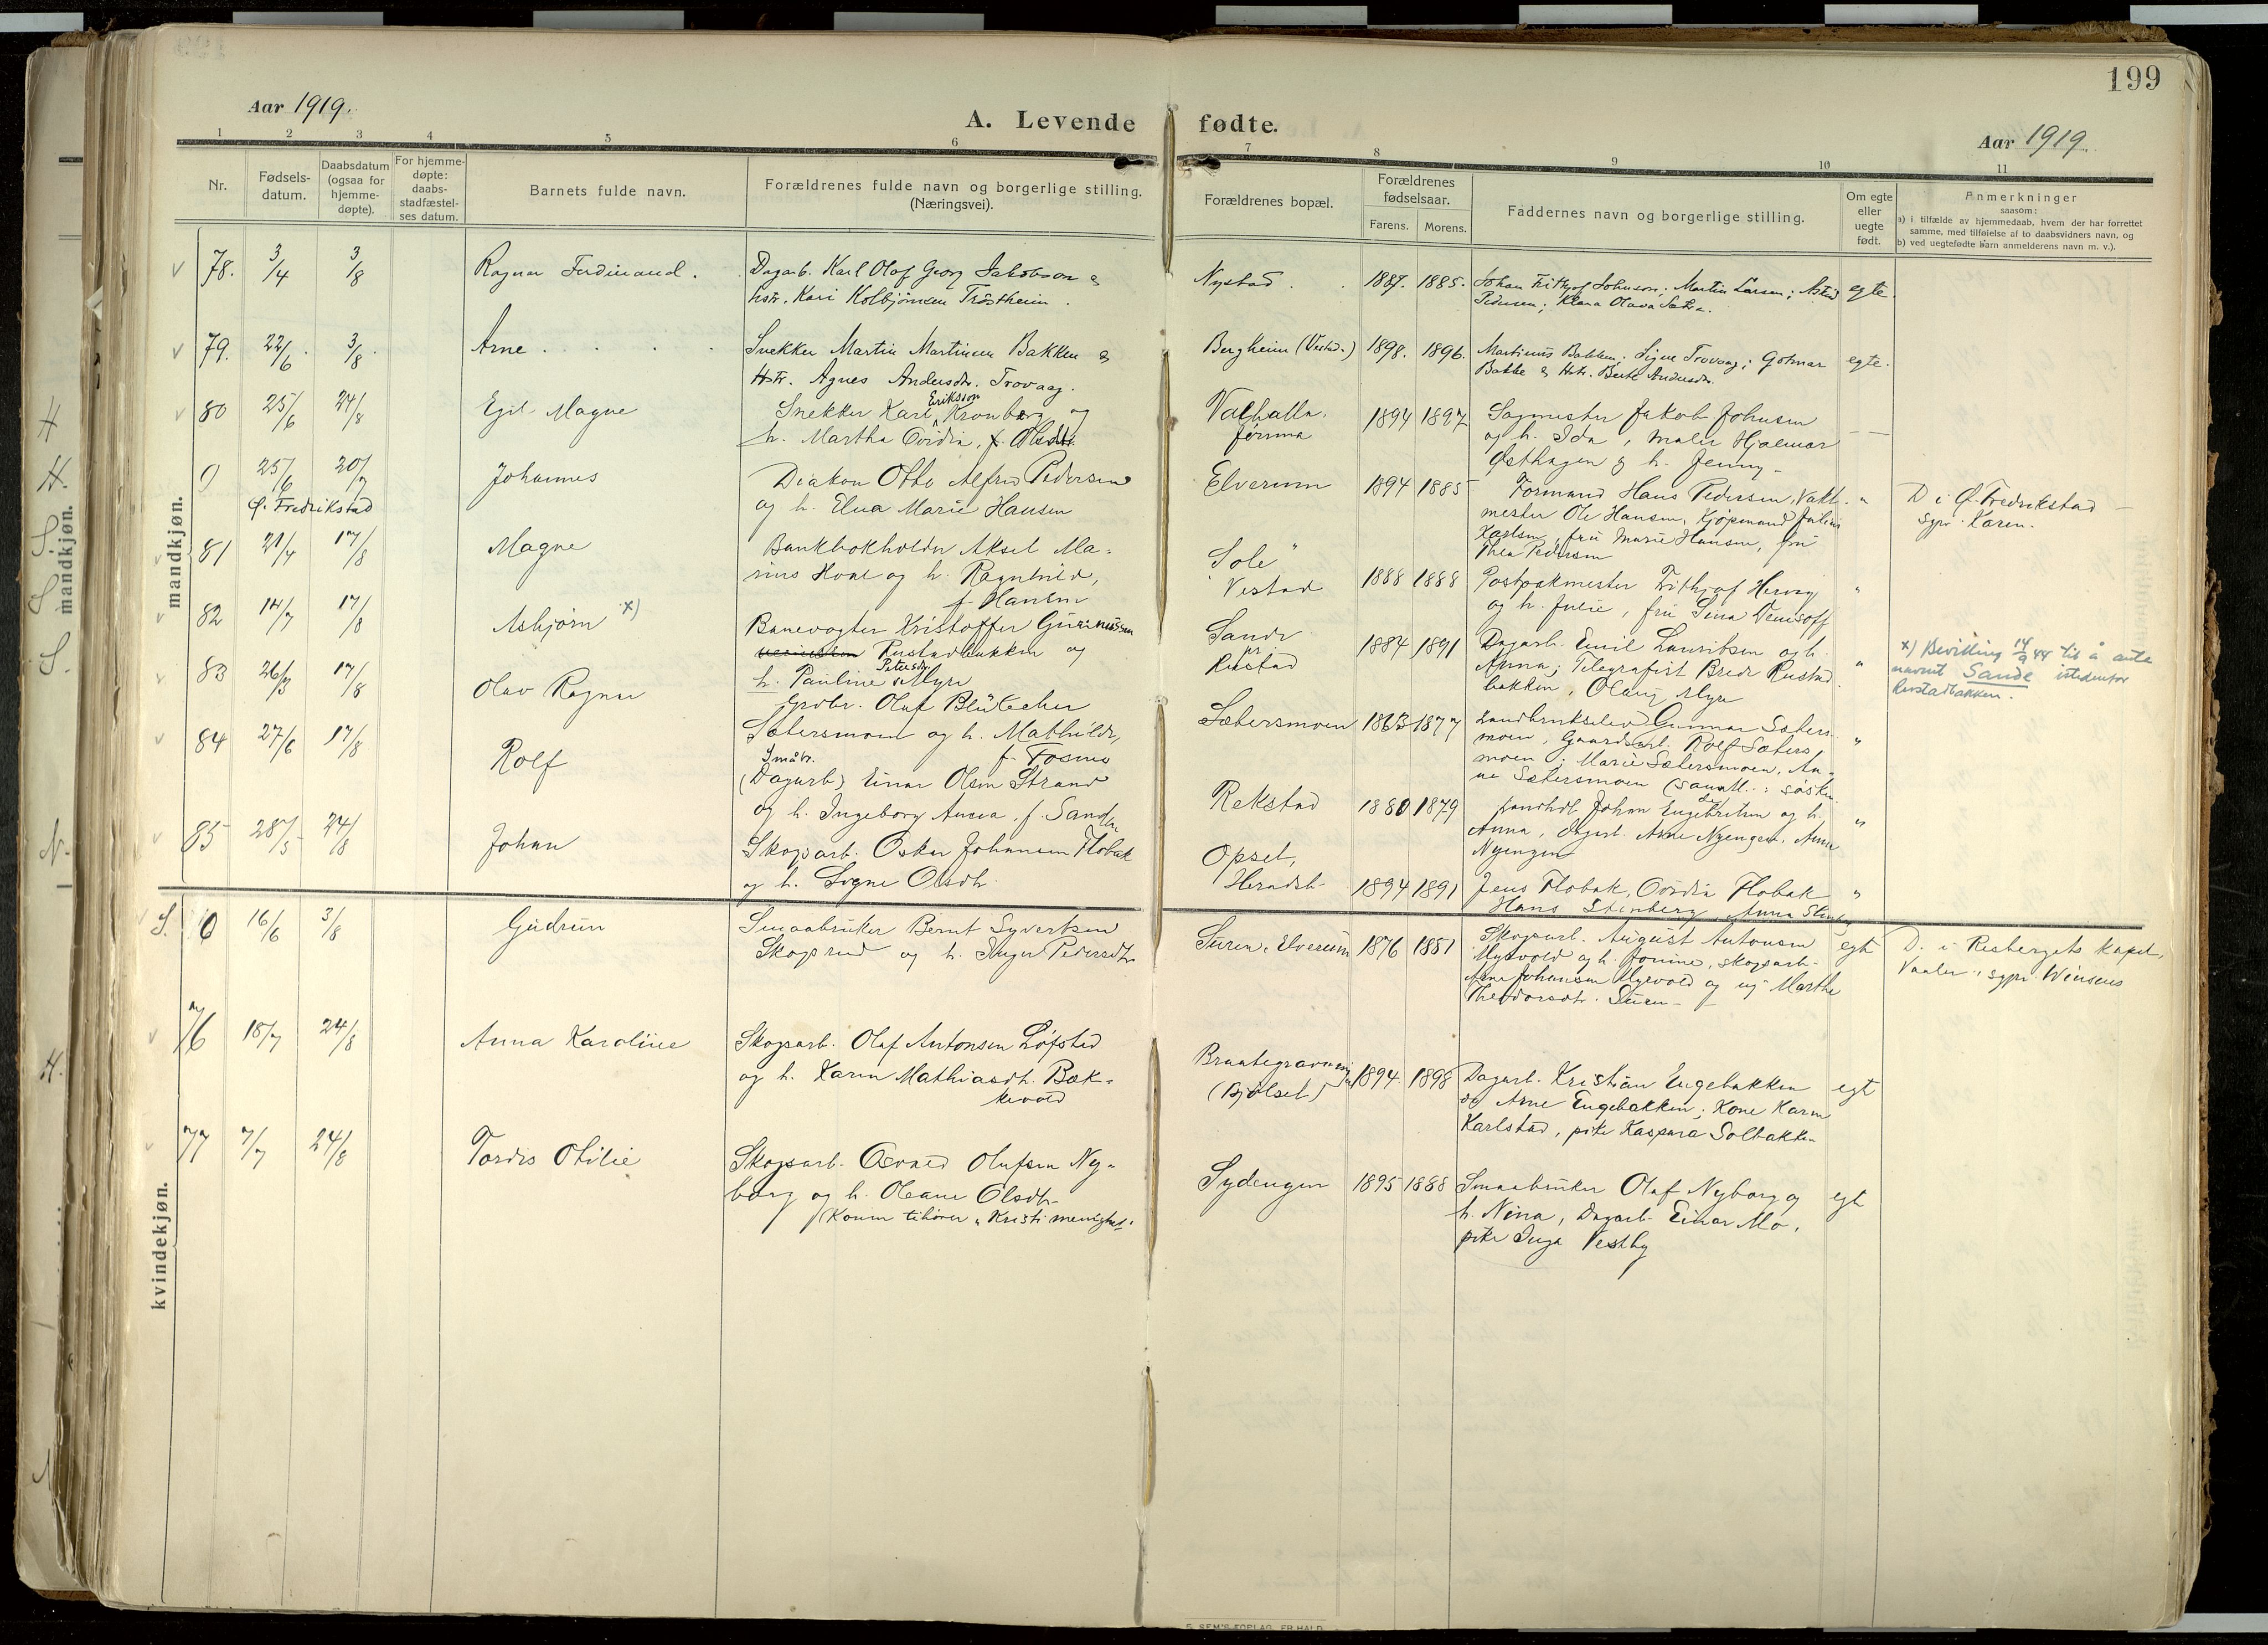 199
Aar 1919.
A. Levende fødte.
Aar 1919.
1 2 3 4 5 6 7 8 9 10 11
Nr.
Fødsels-
datum.
Daabsdatum
(ogsaa for
hjemme-
døpte).
For hjemme-
døpte:
daabs-
stadfæstel-
ses datum.
Barnets fulde navn.
Forældrenes fulde navn og borgerlige stilling.
(Næringsvei).
Forældrenes bopæl.
Forældrenes
fødselsaar.
Farens. Morens.
Faddernes navn og borgerlige stilling.
Om egte
eller
uegte
født.
Anmerkninger
saasom:
a) i tilfælde av hjemmedaab, hvem der har forrettet
samme, med tilføielse af to daabsvidners navn, og
b) ved uegtefødte barn anmelderens navn m. v.).
mandkjøn.
mandkjøn.
78. 3/4 3/8 Ragnar Ferdinand.
Dagarb. Karl Olaf Georg Jakobson &
hstr. Kari Kolbjörnsen Tröstheim.
Nystad 1887. 1885.
Johan Frithjof Johnson; Martin Larsen; Astrid
Pedersen; Klara Olava Sætre.
egte.
79. 22/6 3/8 Arne
Snekker Martin Martinsen Bakken &
Hstr. Agnes Andersdtr. Trovaag.
Bergheim (Vestad.) 1898. 1896.
Martinus Bakken; Signe Trovaag; Gotmar
Bakke & Hstr. Berte Andersdtr.
egte.
80 25/6 24/8 Egil Magne
Eriksson
Snekker Karl Kronberg og
h. Martha Ovidia, f. Olsdtr.
Valhalla,
förrma
1894 1897
Sagmester Jakob Johnsen
og h. Ida, maler Hjalmar
Østhagen & h. Jenny
0 25/6 20/7 Johannes
Ø. Fredrikstad
Diakon Otto Alfred Pedersen
og h. Elna Marie Hansen
Elverum 1894 1885
Formand Hans Pedersen, Vakt-
mester Ole Hansen, Kjøpmand Julius
Karlsen, frü Marie Hansen, frü
Thea Pedersen
"
D i Ø. Fredrikstad
sgpr. Karen.
81 21/4 17/8 Magne
Bankbokholder Aksel Ma-
rius Hoae og h. Ragnhild,
f. Hansen
Sole
Vestad
1888 1888
Postpakmester Frithjof Hervag
og h. Julie, frü Sina Venisoff
"
82 14/7 17/8 Asbjørn x)
Banevogter Kristoffer Gunerüssen
Rustadbakken og
h. Pauline Petersdtr. Myre
Sande
pr.
Rustad
1884 1891
Dagarb. Emil Lauritsen og h.
Anna; Telegrafist Brede Rustad-
bakken, Olaug Myre
"
x) Bevilling 14/9 44 til å anta
navnet Sande istedenfor
Rustadbakken.
83 26/3 17/8 Olav Ragnar
Grdbr. Oluf Blütecher
Sætersmoen og h. Mathilde,
f. Fosmo
Sætersmoen 1863 1877
Landbrukselev Gunnar Sæters-
moen, Gaardsarb. Rolf Sæters-
moen; Marie Sætersmoen, An-
ne Sætersmoen (samtl.: sösken
"
84 27/6 17/8 Rolf
Småbr.
(Dagarb) Einar Olsen Strand
og h. Ingeborg Anna, f. Sander
Rekstad 1880 1879
Landhdl. Johan Engebretsen og h.
Anna, dagarb. Arne Nyengen, Anna
Nyengen
"
85 28/5 24/8 Johan
Skogsarb. Oskar Johansen Flobak
og h. Signe Olsdtr.
Opset,
Heradsb.
1894 1891
Jens Flobak, Ovidia Flobak
Hans Stenberg, Anna Stenberg
"
kvindekjøn.
S. 0 16/6 3/8 Güdrün
Smaabrüker Bernt Syvertsen
Skogsrud og h. Inger Pedersdtr
Süren, Elverum 1876 1881
Skogsarb. August Antonsen
Myrvold og h. Jonine, skogsarb.
Arne Johansen Myrvold og uj. Marthe
Theodorsdtr. Süren
egt
D. i Risbergets kapel,
Vaaler, sgpr. Winsens
76 18/7 24/8 Anna Karoline
Skogsarb. Olaf Antonsen Löfstad
og h. Karen Mathiasdtr. Bæk-
kevold
Brantegravningen
(Bjölset)
1894. 1898
Dagarb. Kristian Engebakken
og Arne Engebakken; Kone Karen
Karlstad, pike Kaspara Solbakken
egt
77 7/7 24/8 Tordis Otilie
Skogsarb. Osvald Olufsen Ny-
borg og h. Oleane Olsdtr.
(Konen tilhører "Kristi menighet"
Sydengen 1895 1888
Smaabrüker Olaf Nyborg og
h. Nina, Dagarb. Einar Mo,
pike Inga Vestby
egt
S. SEM'S FORLAG, FR.HALD.